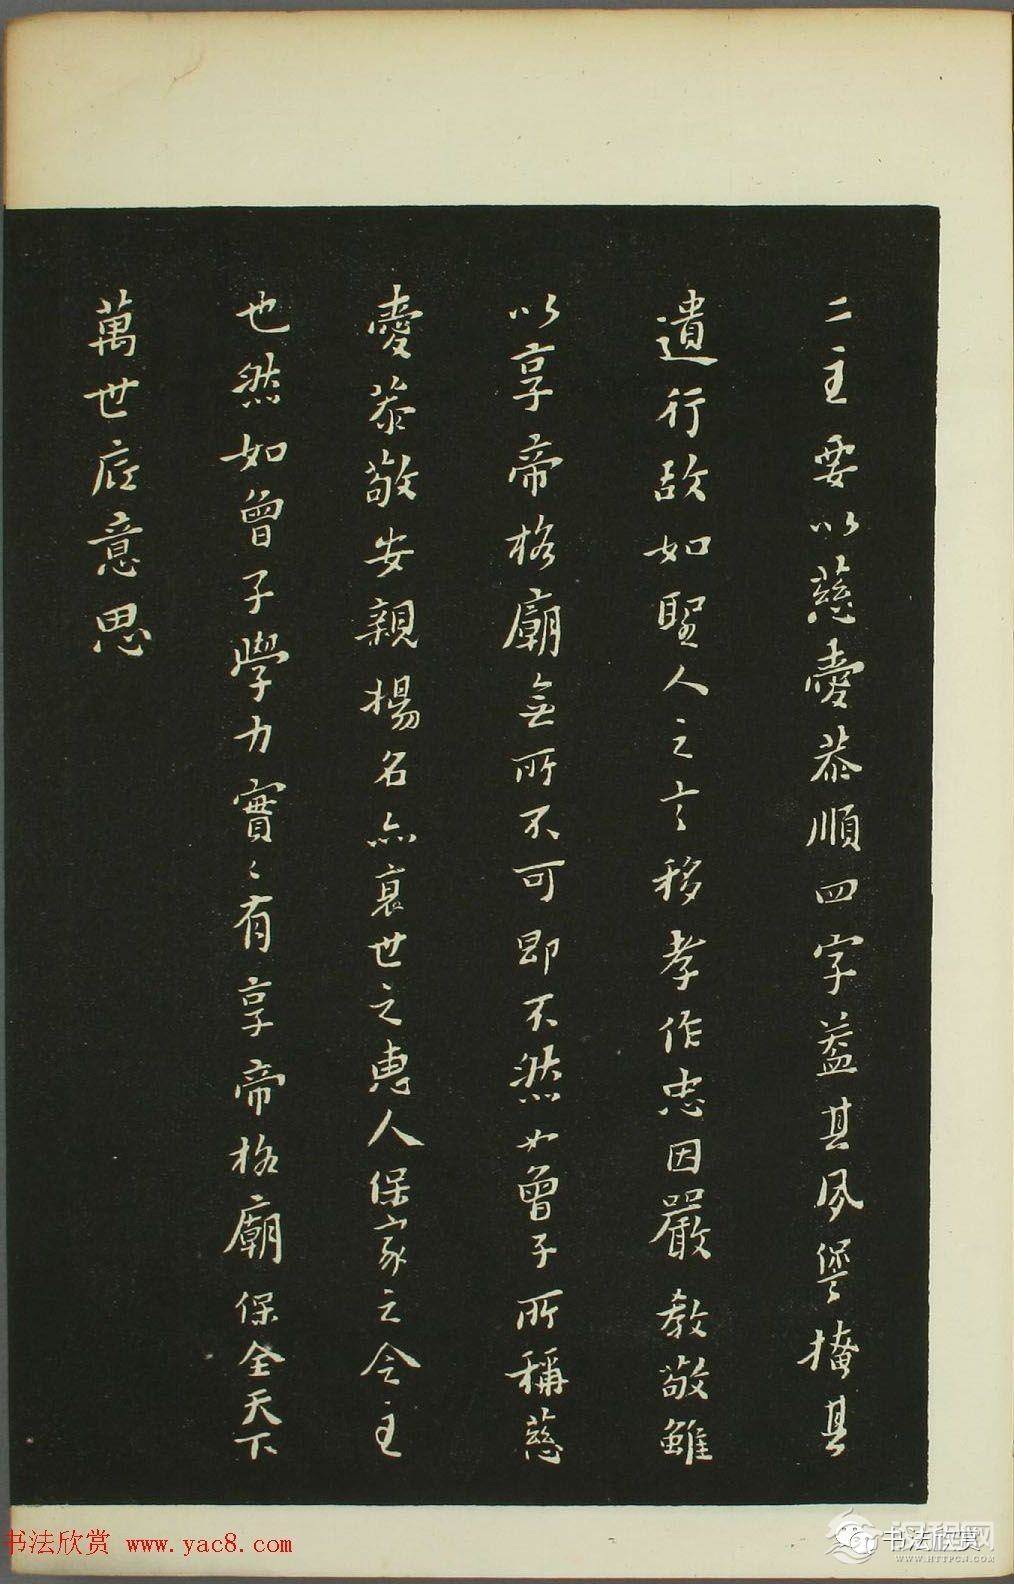 二主要以慈愛恭順四字蓋其夙愆掩其
遺行故如聖人之言移孝作忠因嚴教敬雖
以享帝格廟無所不可即不然如曾子所稱慈
愛恭敬安親揚名亦衰世之惠人保家之令主
也然如曾子學力實〻有享帝格廟保全天下
萬世底意思
书法欣赏 www.yac8.com
书法欣赏
汉程网
WWW.HTTPCN.COM